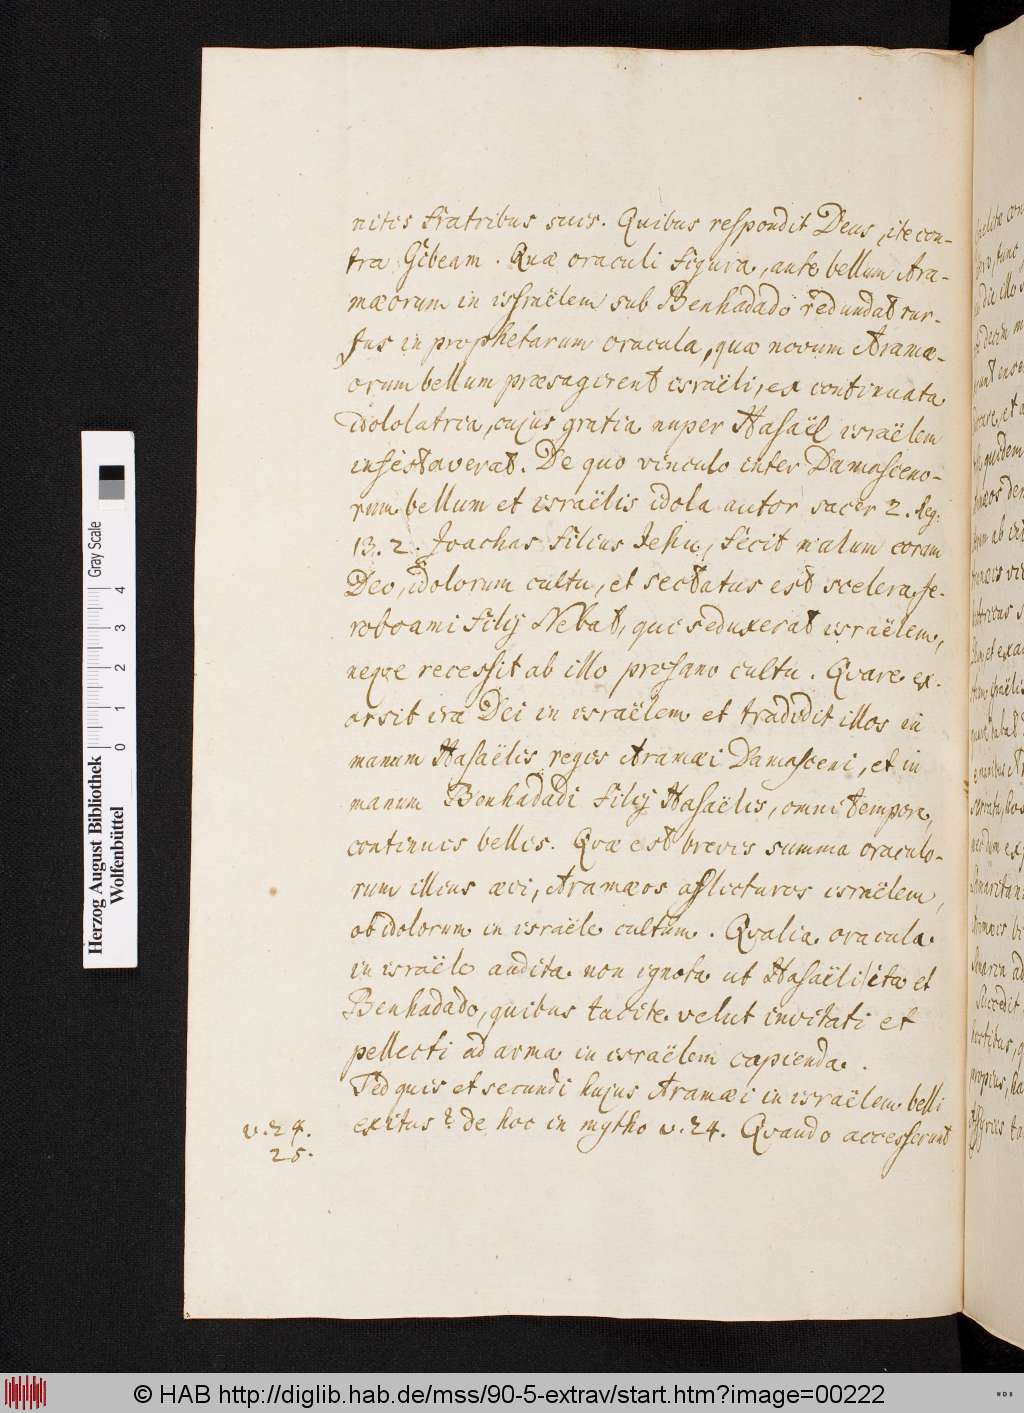 nitis fratribus suis. Quibus respondit Deus, ite con-
tra Gibeam. Quæ oraculi figura, ante bellum Ara-
mæorum in israëlem sub Benhadado redundat rur-
sus in prophetarum oracula, quæ novum Aramæ-
orum bellum præsagirent israëli, ex continuata
idololatria, cujus gratia nuper Hasaël israëlem
infestaverat. De quo vinculo inter Damasceno-
rum bellum et israëlis idola autor sacer 2. Reg.
13. 2. Joachas filius Jehu, fecit malum coram
Deo, idolorum cultu, et sectatus est scelera Je-
roboami filij Nebat, qui seduxerat israëlem,
neqve recessit ab illo profano cultu. Qvare ex-
orsit iræ Dei in israëlem et tradidit illos in
manum Hasaëlis regis Aramæi Damasceni, et in
manum Benhadadi filij Hasaëlis, omni tempore,
continuis bellis. Qvæ est brevis summa oraculo-
rum illius ævi, Aramæos afflicturos israëlem,
ob idolorum in israële cultum. Qvalia oracula
in israële audita non ignota ut Hasaëli ita et
Benhadado, quibus tacite velut invitati et
pellecti ad arma in israëlem capienda.
Sed quis et secundi hujus Aramæi in israëlem belli
exitus? de hoc in mytho v. 24. Qvando accesserunt
v. 24.
25.
Herzog August Bibliothek
Wolfenbüttel
Gray Scale
0 1 2 3 4
© HAB http://diglib.hab.de/mss/90-5-extrav/start.htm?image=00222